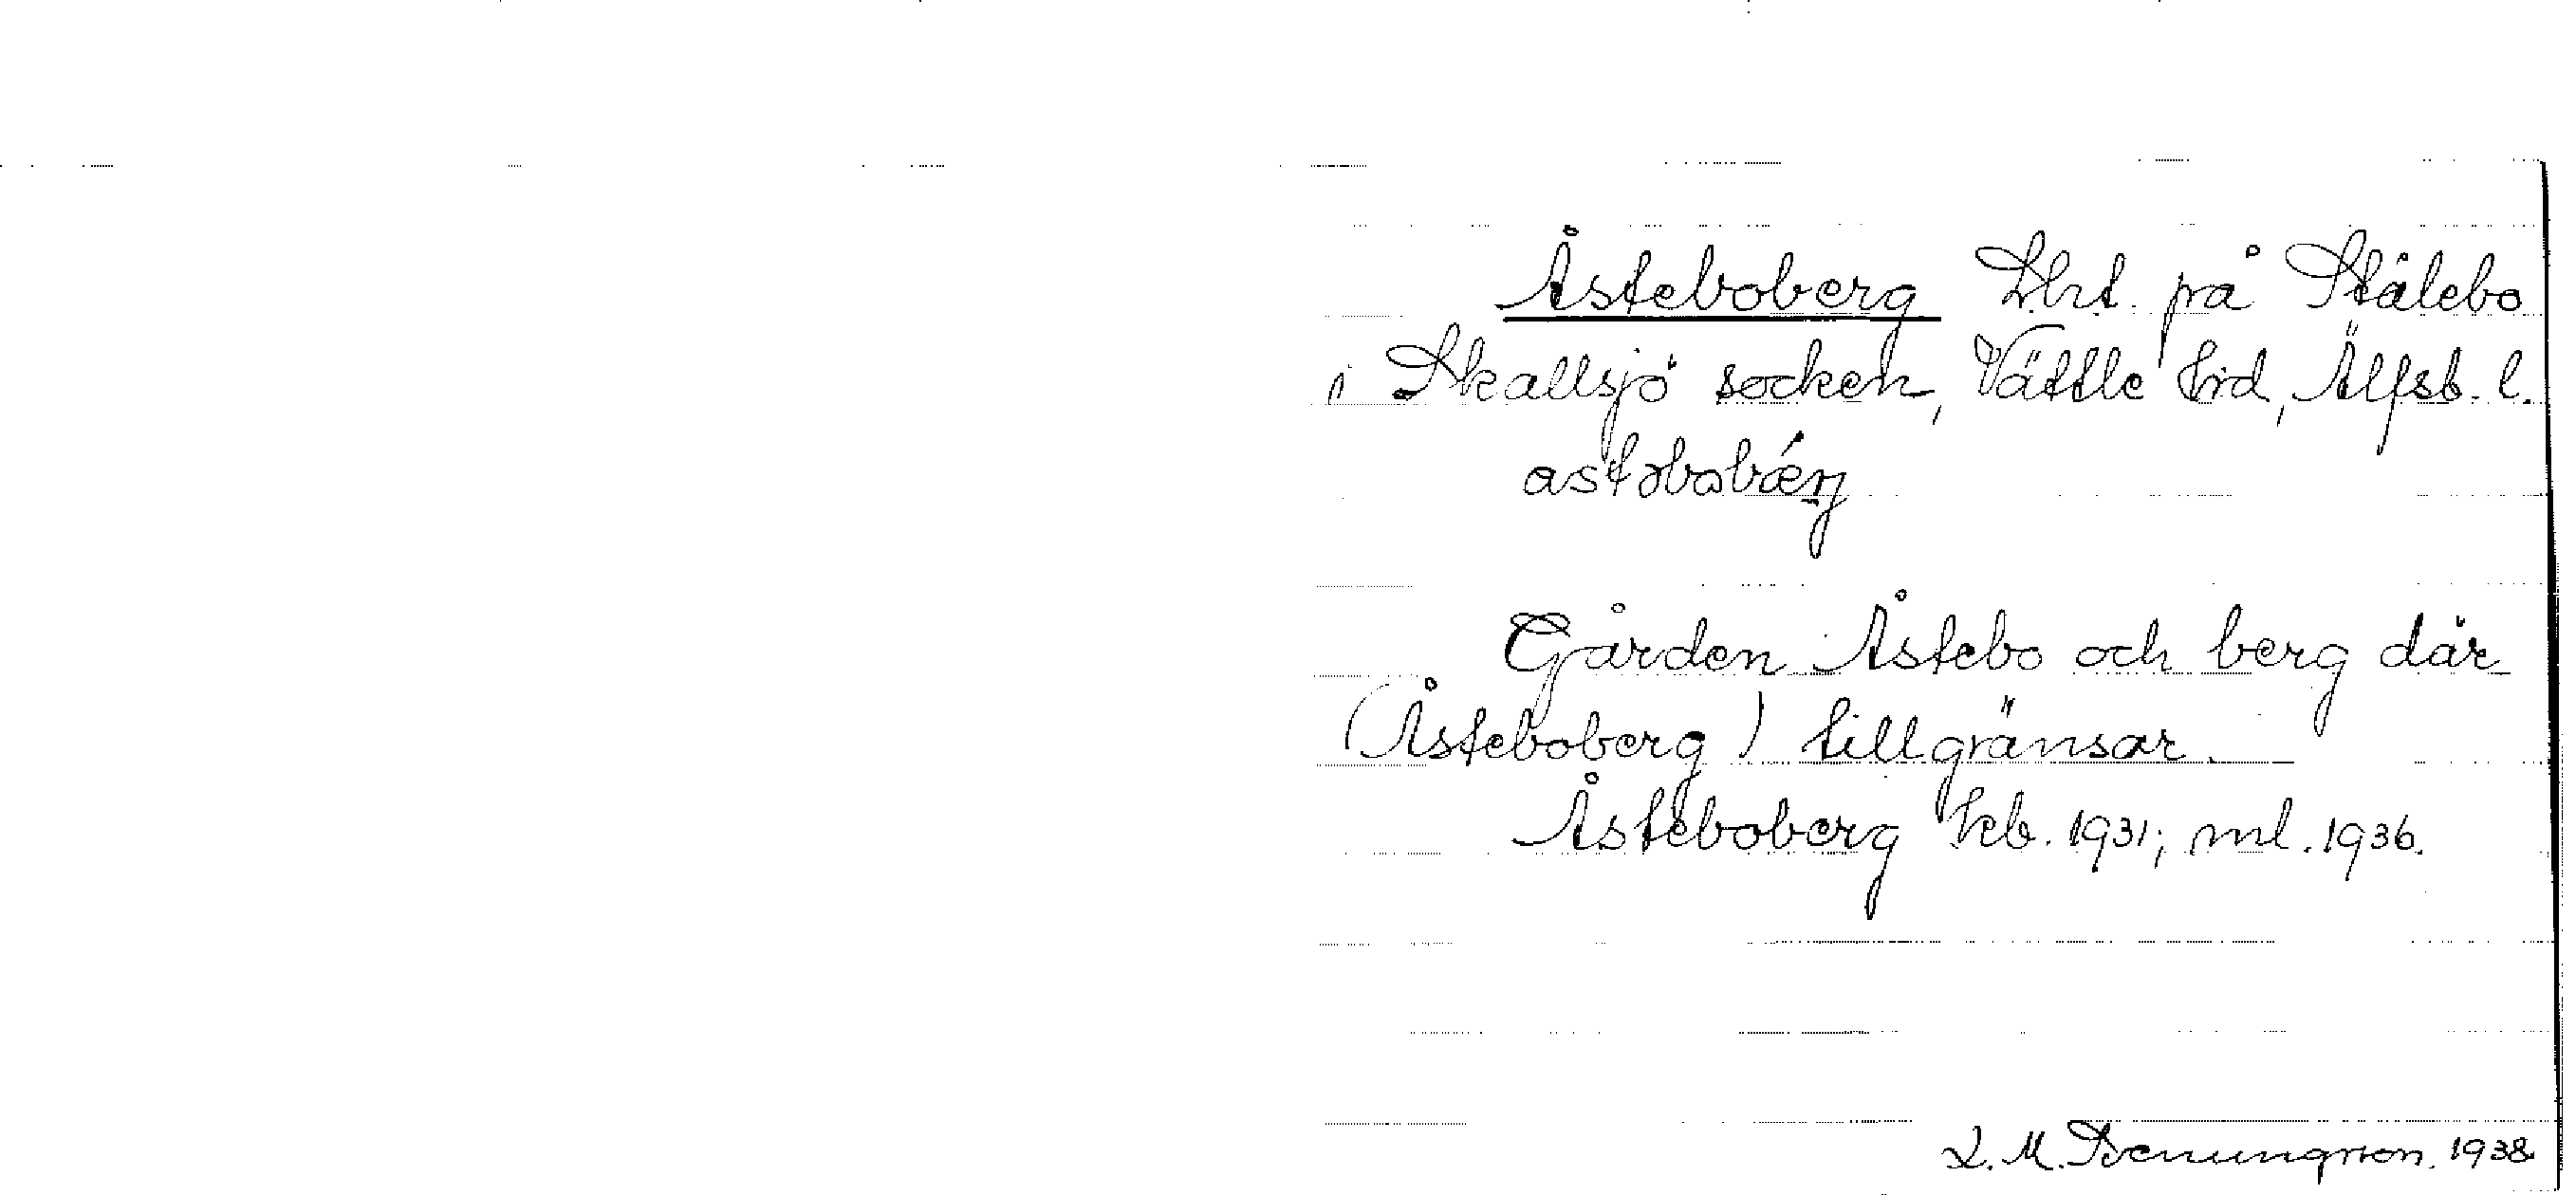 Åsteboberg Lht. på Stålebo
i Skallsjö socken, Vättle hd, Älfsb. l.
Gården Åstebo och berg där
(Åsteboberg) tillgränsar.
Åsteboberg kb. 1931; ml. 1936.
L. M. 1938